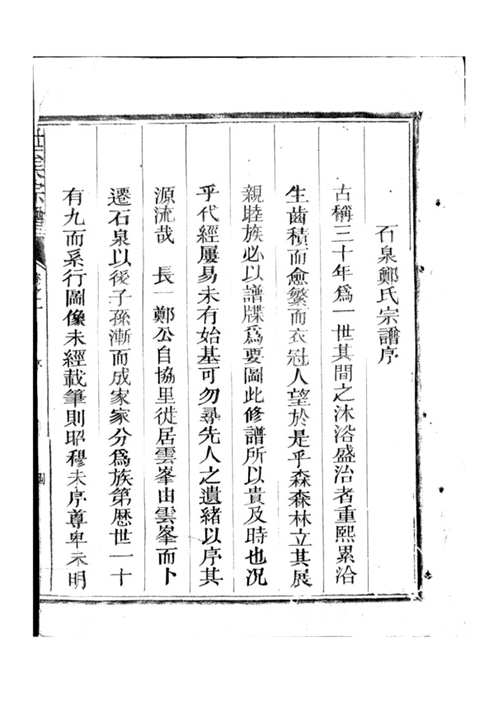 石泉鄭氏宗譜序
古稱三十年爲一世其間之沐浴盛治者重熙累洽
生齒積而愈繁而衣冠人望於是乎森森林立其展
親睦族必以譜牒爲要圖此修譜所以貴及時也况
乎代經屢易未有始基可勿尋先人之遺緒以序其
源流哉 長一鄭公自協里徙居雲峯由雲峯而卜
遷石泉以後子孫漸而成家家分爲族第歷世一十
有九而系行圖像未經載筆則昭穆未序尊卑未明
宗譜
卷之一
序